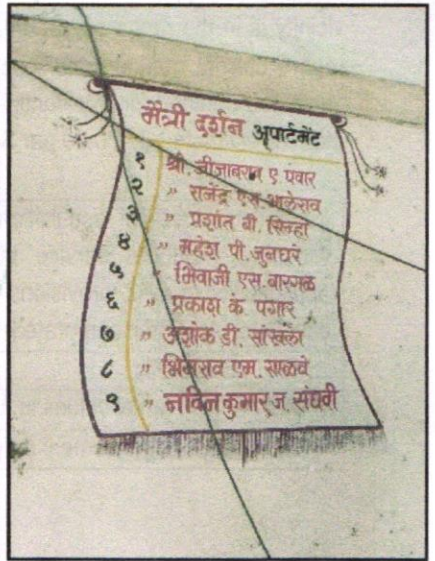 मैत्री दर्शन अपार्टमेंट
१ श्री. जीजाबराव ए पवार
२ " राजेंद्र एस. भालेराव
३ " प्रशांत बी. सिन्हा
४ " महेश पी. जुनघरे
५ " भिवाजी एस. बारगळ
६ " प्रकाश के. पगार
७ " अशोक डी. सांखला
८ " भिमराव एम. साळवे
९ " नविनकुमार ज. संघवी